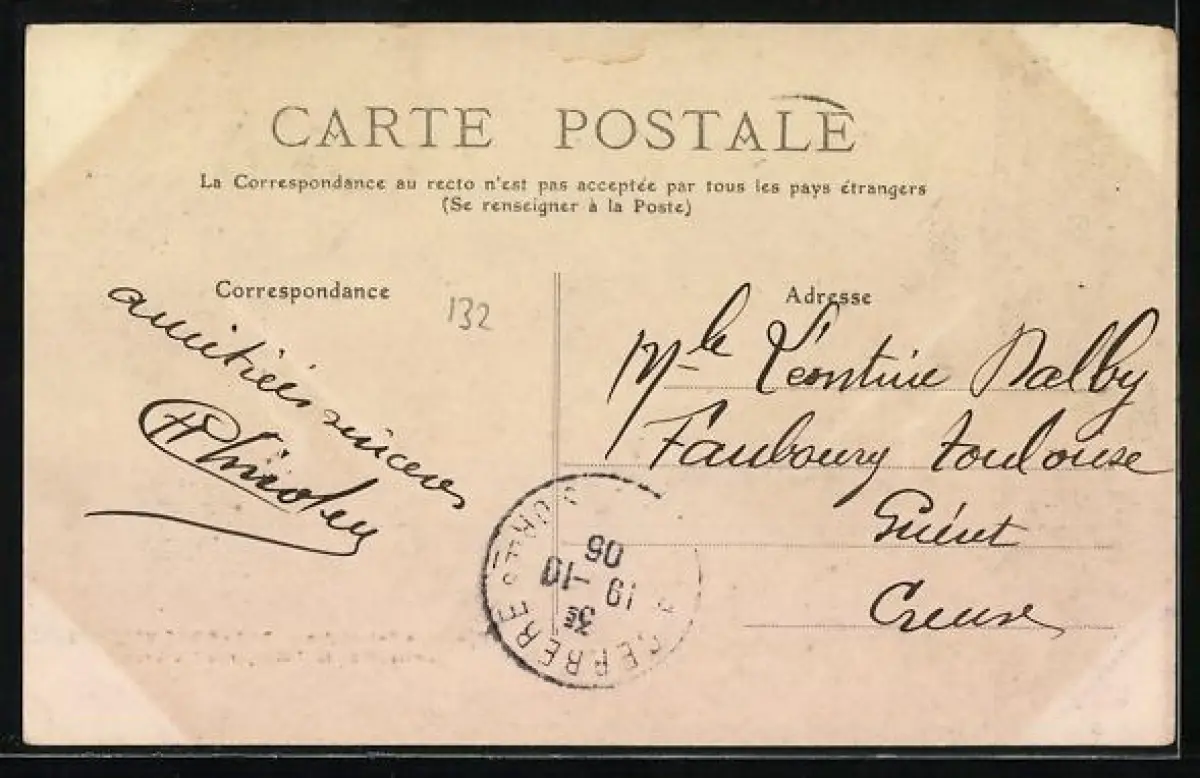 CARTE POSTALE
La Correspondance au recto n'est pas acceptée par tous les pays étrangers
(Se renseigner à la Poste)
Correspondance
132
amitiées sincères
Adresse
Mlle Léontine Dalby
Faubourg Toulouse
Guéret
Creuse
3E
19 -10
05